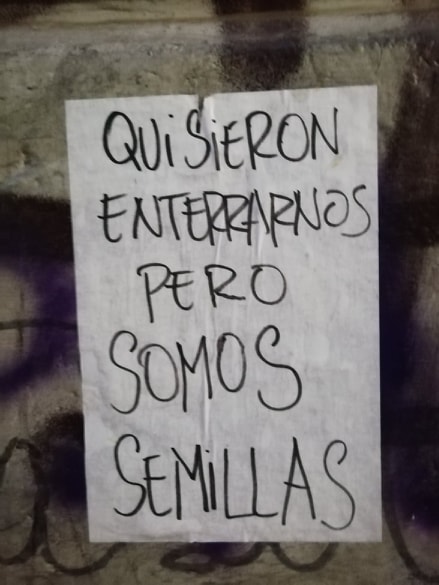 QUiSiERON
ENTERRARNOS
PERO
SOMOS
SEMiLLAS